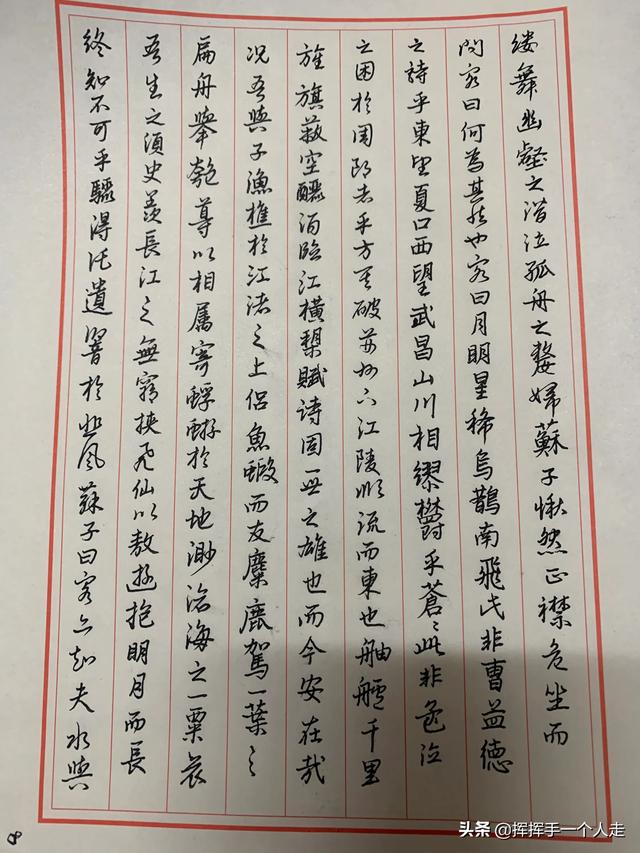 缕舞幽壑之潛泣孤舟之嫠婦蘇子愀然正襟危坐而
問客曰何為其然也客曰月明星稀烏鵲南飛此非曹益德
之詩乎東望夏口西望武昌山川相繆鬱乎蒼〻此非
之困於周郎者乎方其破荊州下江陵順流而東也舳艫千里
旌旗蔽空釃酒臨江橫槊賦詩固一世之雄也而今安在哉
況吾與子漁樵於江渚之上侶魚蝦而友麋鹿駕一葉之
扁舟舉匏尊以相屬寄蜉蝣於天地渺滄海之一粟哀
吾生之須臾羨長江之無窮挾飛仙以遨遊抱明月而長
終知不可乎驟得託遺響於悲風蘇子曰客亦知夫水與
8
头条 @挥挥手一个人走